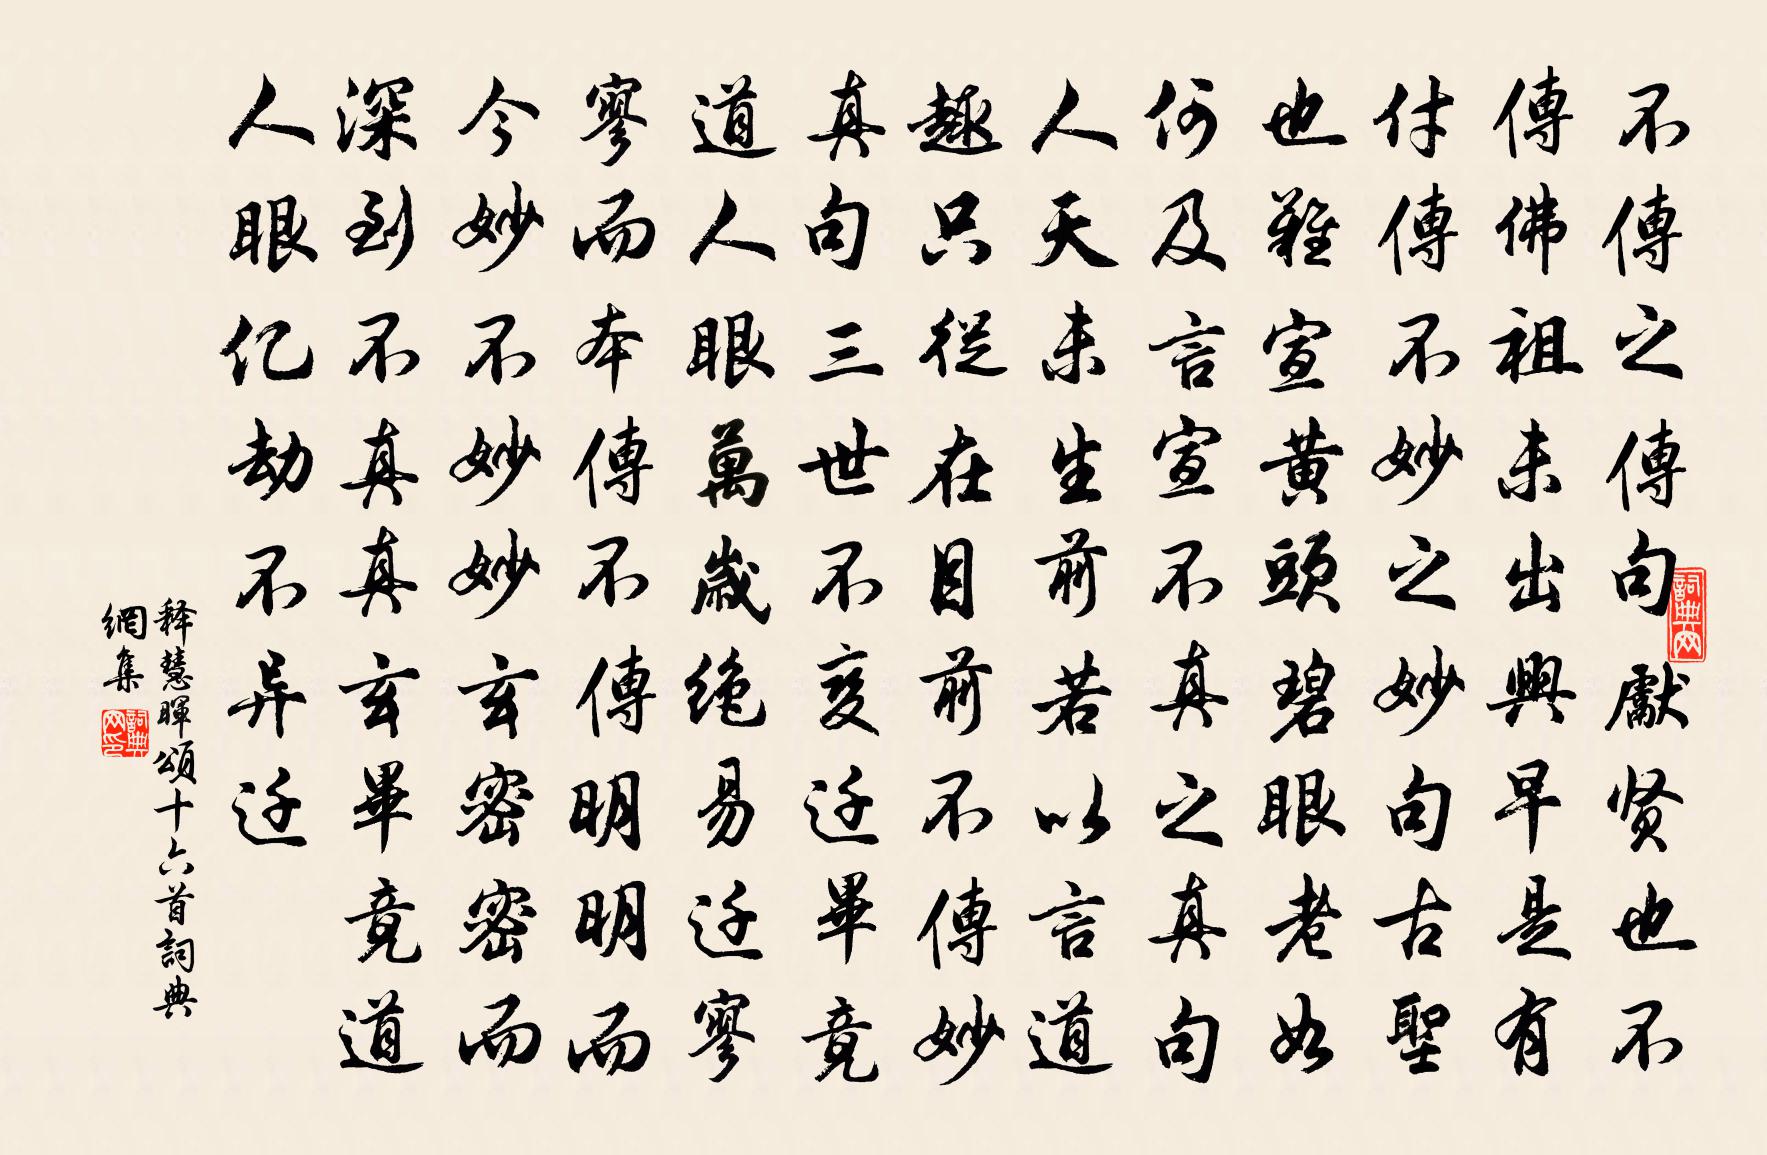 不傳之傳句獻贤也不
傳佛祖未出興早是有
付傳不妙之妙句古聖
也難宣黃頭碧眼老如
何及言宣不真之真句
人天未生前若以言道
趣只從在目前不傳妙
真句三世不变迁畢竟
道人眼萬歲绝易迁寥
寥而本傳不傳明明而
今妙不妙妙玄密密而
深到不真真玄畢竟道
人眼亿劫不异迁
释慧暉頌十六首詞典
網集
詞典网
詞典网印